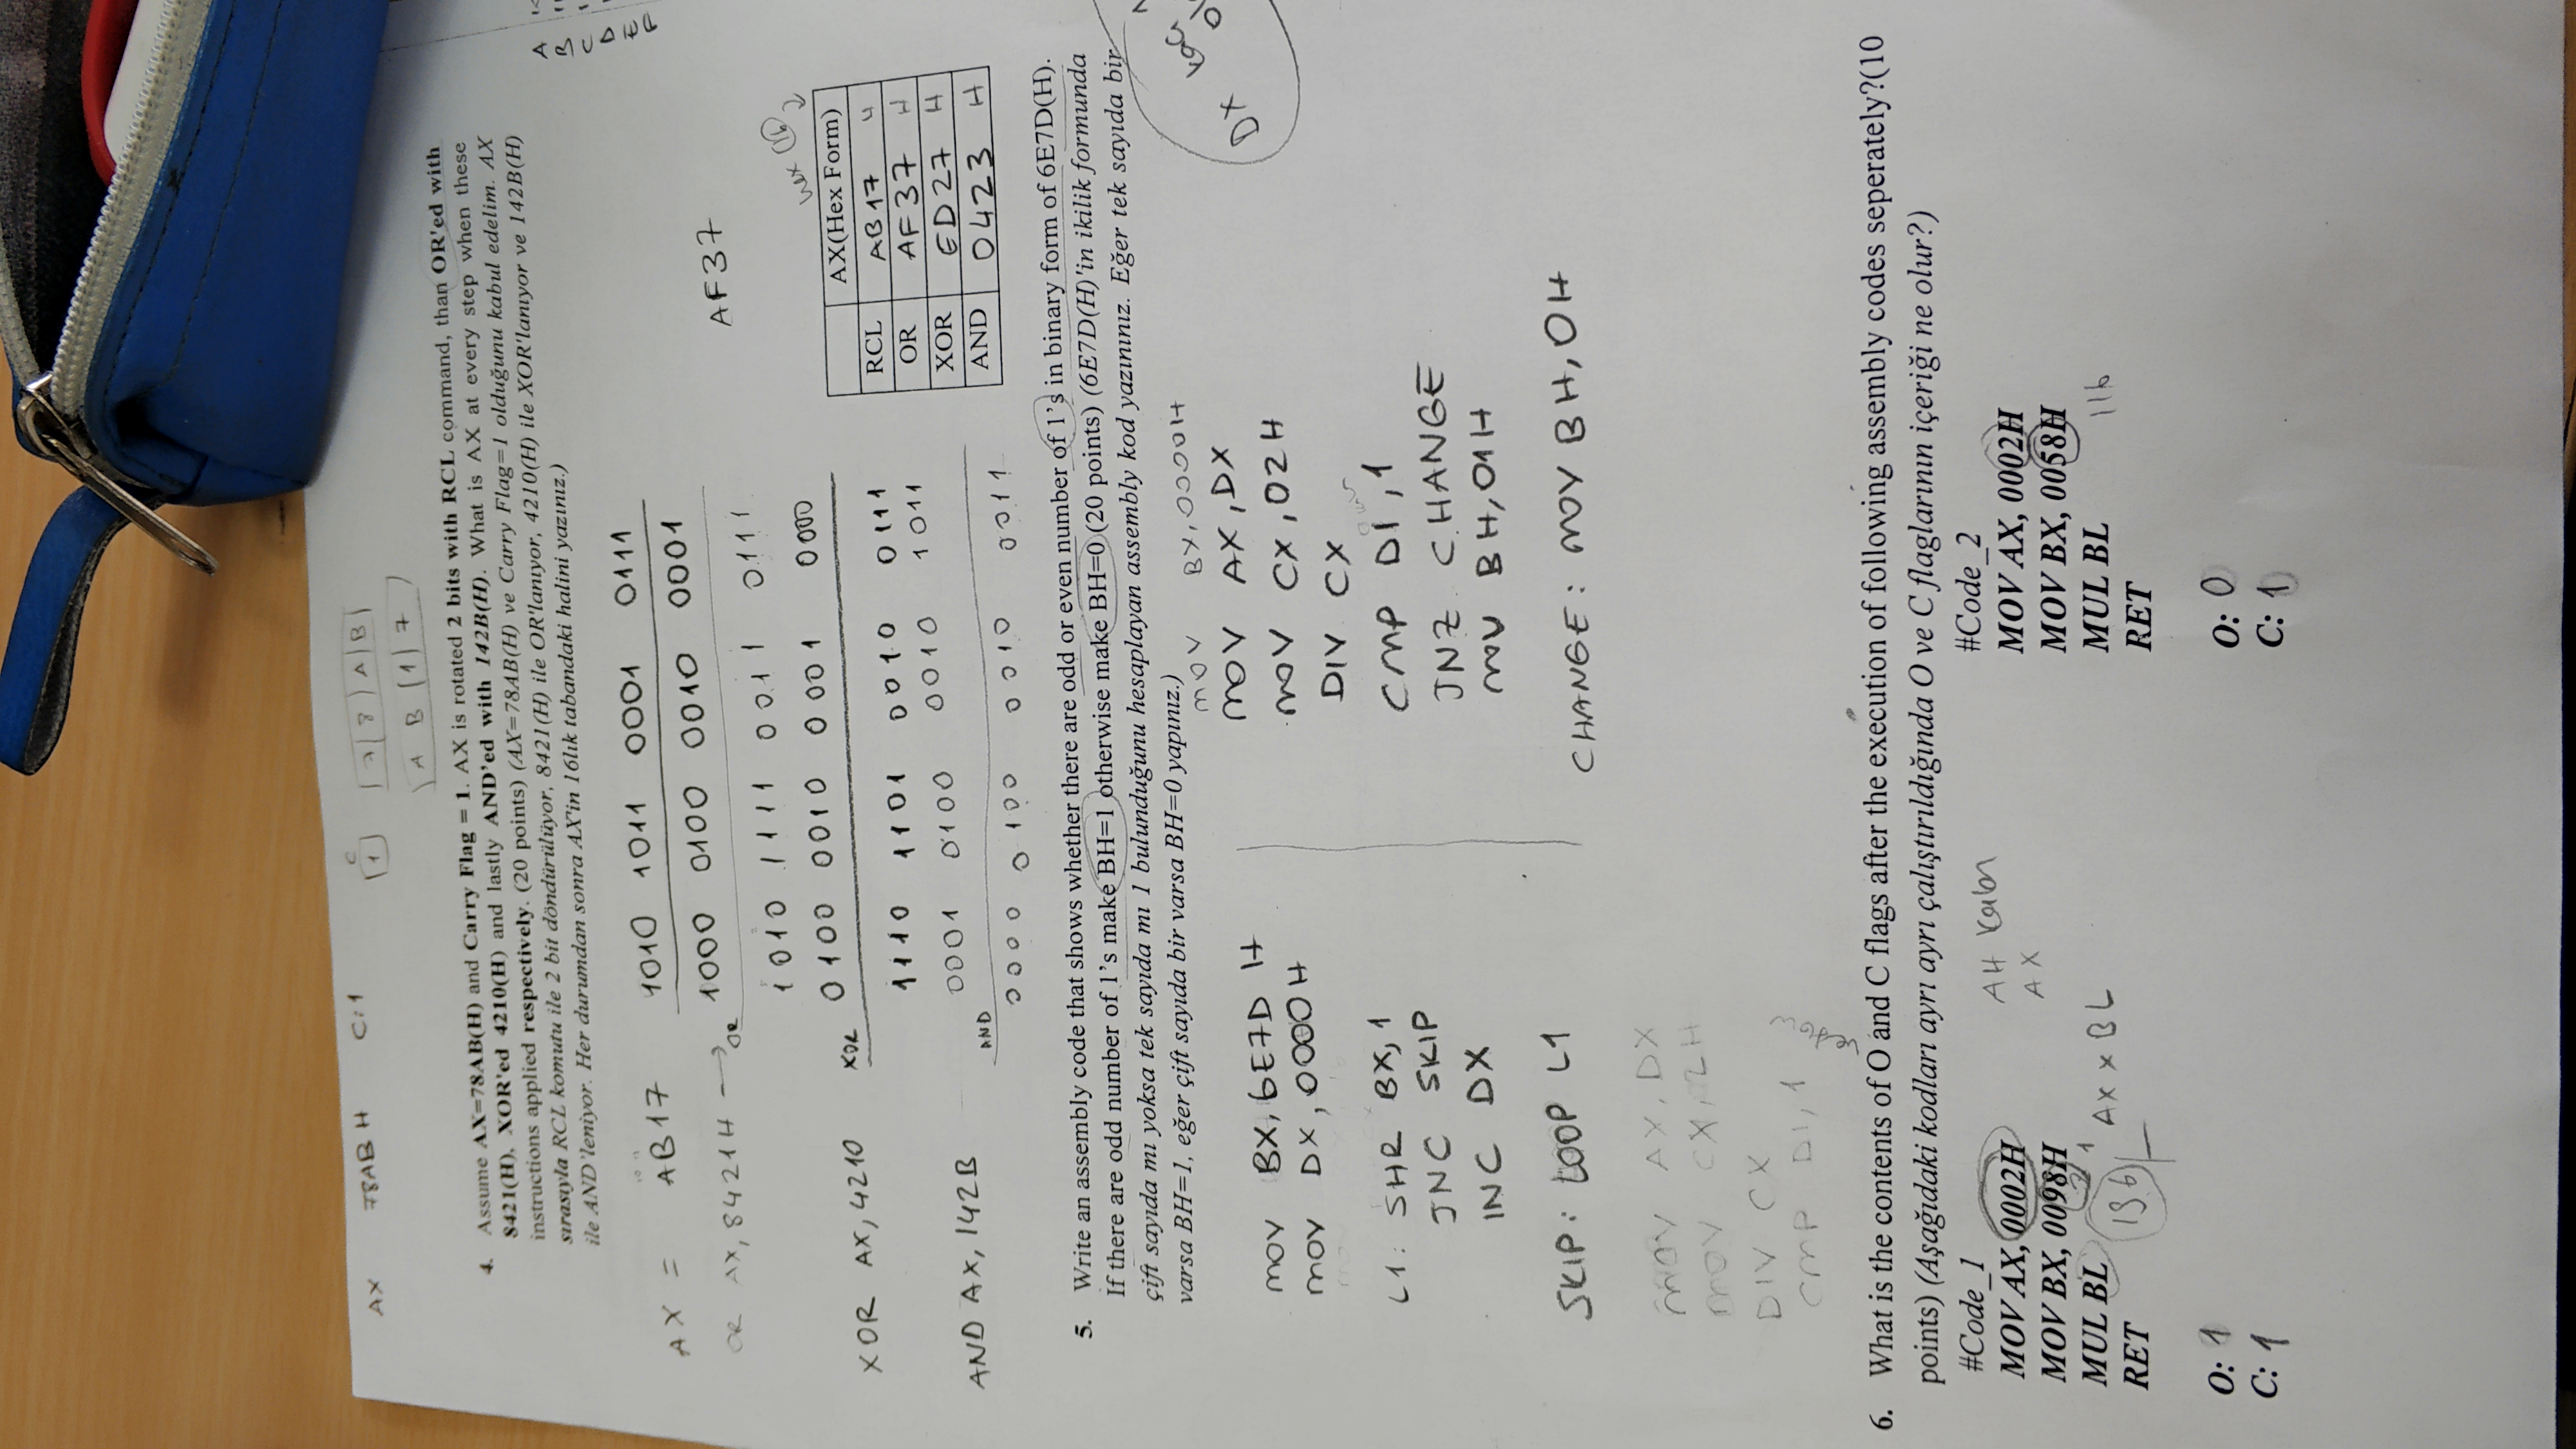 AX 78AB H C:1
C
1 7 8 A B
A B 1 7
4. Assume AX=78AB(H) and Carry Flag = 1. AX is rotated 2 bits with RCL command, than OR'ed with
8421(H), XOR'ed 4210(H) and lastly AND'ed with 142B(H). What is AX at every step when these
instructions applied respectively. (20 points) (AX=78AB(H) ve Carry Flag=1 olduğunu kabul edelim. AX
sırasıyla RCL komutu ile 2 bit döndürülüyor, 8421(H) ile OR'lanıyor, 4210(H) ile XOR'lanıyor ve 142B(H)
ile AND'leniyor. Her durumdan sonra AX'in 16lık tabandaki halini yazınız.)
A
B
C
D
E
F
AX = AB17 1010 1011 0001 0111
OR AX, 8421H → OR 1000 0100 0010 0001
AF37
1010 1111 0011 0111
XOR AX, 4210 XOR 0100 0010 0001 0000
1110 1101 0010 0111
AND AX, 142B AND 0001 0100 0010 1011
0000 0100 0010 0011
hex (16)
AX(Hex Form)
RCL AB17 H
OR AF37 H
XOR ED27 H
AND 0423 H
5. Write an assembly code that shows whether there are odd or even number of 1's in binary form of 6E7D(H).
If there are odd number of 1's make BH=1 otherwise make BH=0 (20 points) (6E7D(H)'in ikilik formunda
çift sayıda mı yoksa tek sayıda mı 1 bulunduğunu hesaplayan assembly kod yazınınız. Eğer tek sayıda bir
varsa BH=1, eğer çift sayıda bir varsa BH=0 yapınız.)
DX kaç
MOV BX, 6E7D H
MOV DX, 0000H
L1: SHR BX, 1
JNC SKIP
INC DX
SKIP: LOOP L1
MOV AX, DX
MOV CX, 02H
DIV CX
CMP DI, 1
MOV BX, 0000H
MOV AX, DX
MOV CX, 02H
DIV CX
CMP DI, 1
JNZ CHANGE
MOV BH, 01H
CHANGE: MOV BH, 0H
6. What is the contents of O and C flags after the execution of following assembly codes seperately?(10
points) (Aşağıdaki kodları ayrı ayrı çalıştırıldığında O ve C flaglarının içeriği ne olur?)
#Code_1
MOV AX, 0002H
MOV BX, 0098H
MUL BL
RET
AH
AX
2
1
196
AX x BL
O: 1
C: 1
#Code_2
MOV AX, 0002H
MOV BX, 0058H
MUL BL
116
RET
O: 0
C: 1